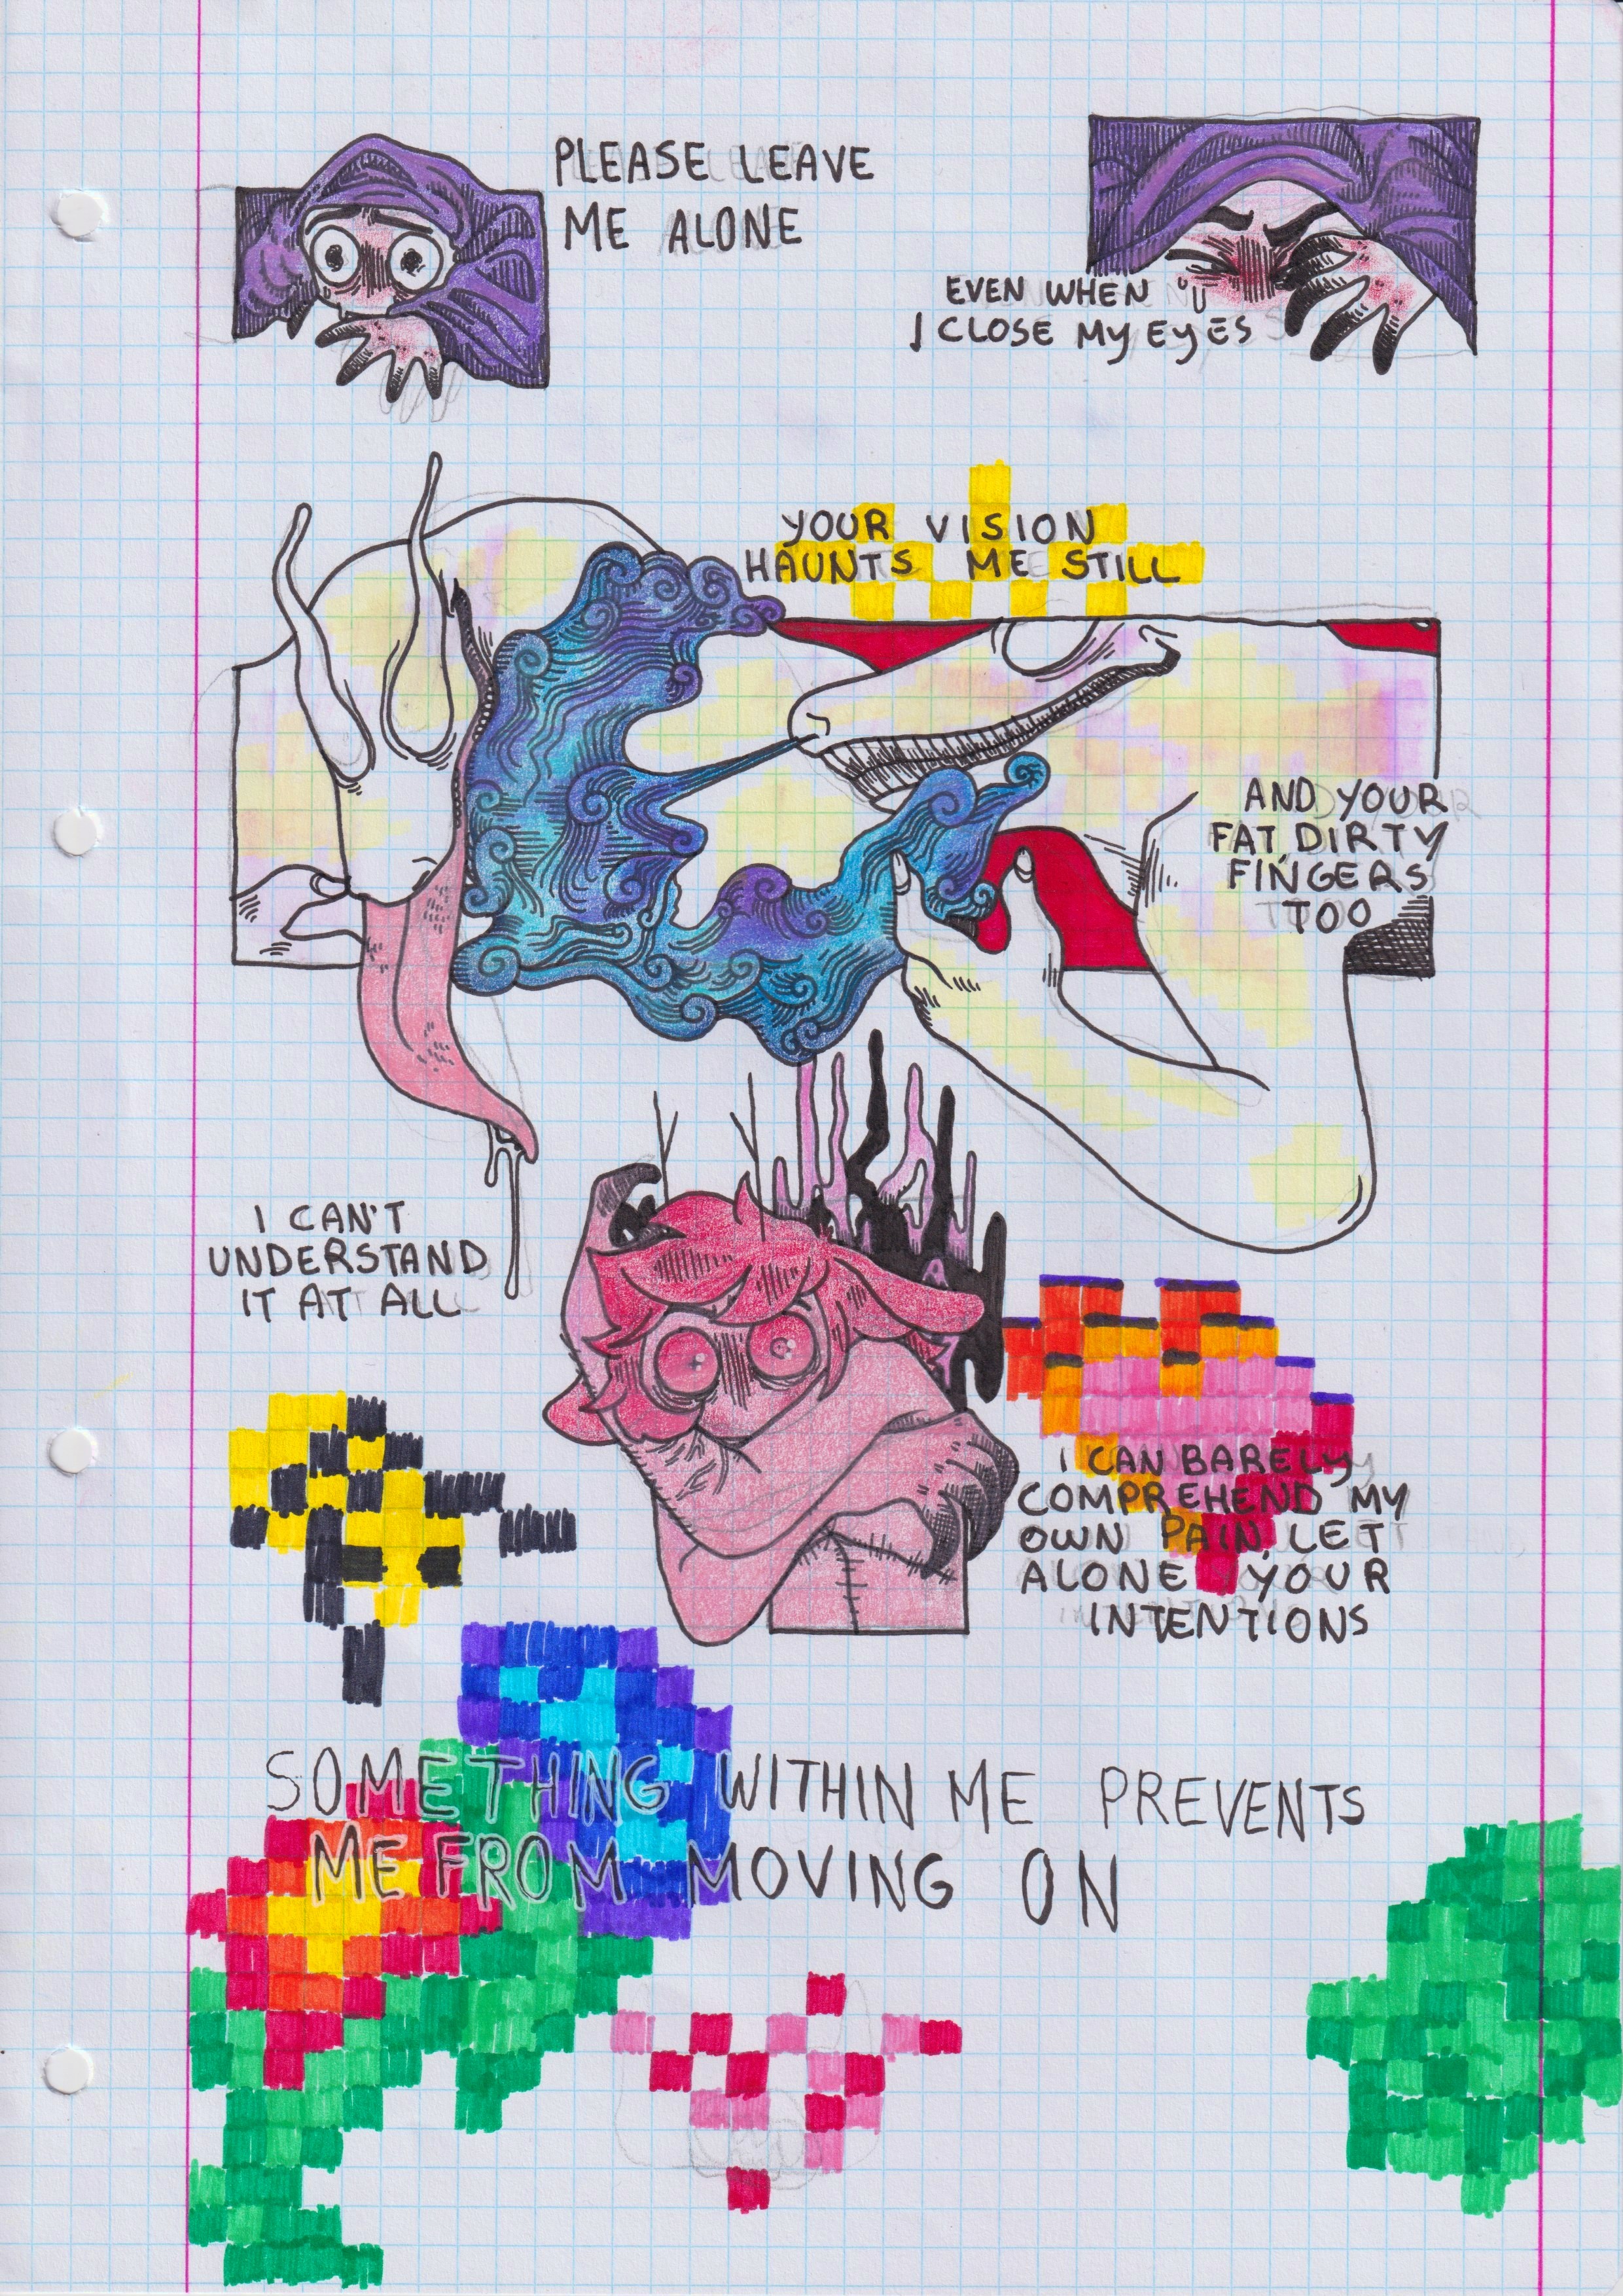 PLEASE LEAVE
ME ALONE
EVEN WHEN
I CLOSE MY EYES
YOUR VISION
HAUNTS ME STILL
AND YOUR
FAT, DIRTY
FINGERS
TOO
I CAN'T
UNDERSTAND
IT AT ALL
I CAN BARELY
COMPREHEND MY
OWN PAIN, LET
ALONE YOUR
INTENTIONS
SOMETHING WITHIN ME PREVENTS
ME FROM MOVING ON